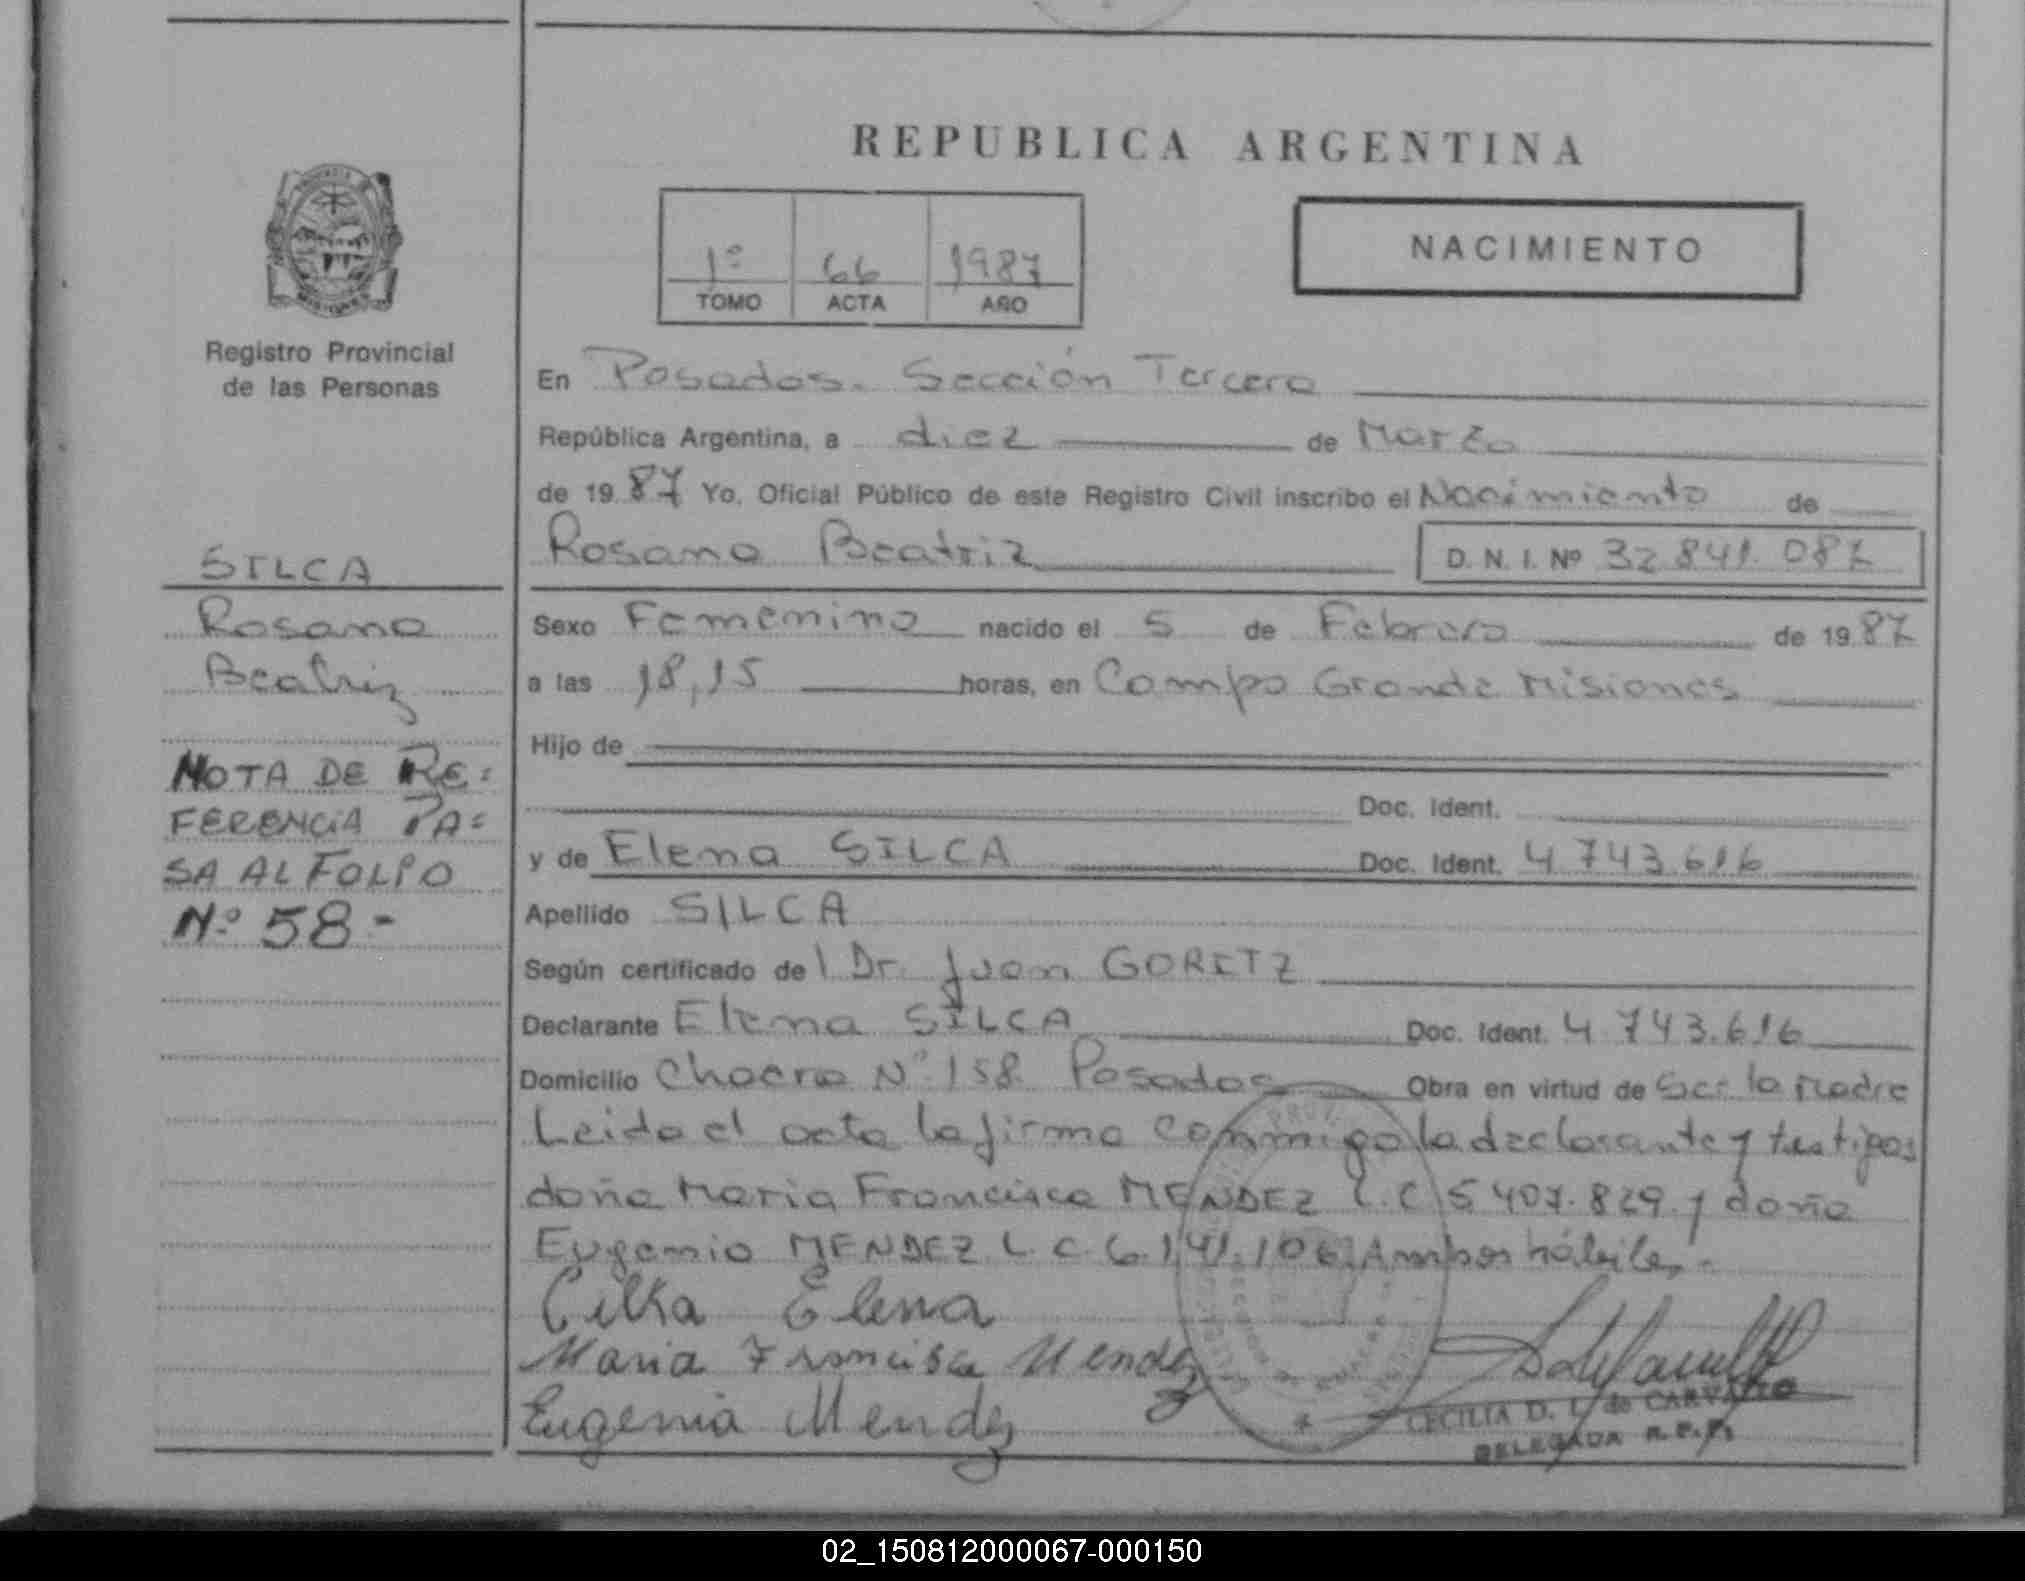 REPUBLICA ARGENTINA
1º 66 1987
TOMO ACTA AÑO
NACIMIENTO
Registro Provincial
de las Personas
SILCA
Rosana
Beatriz
NOTA DE RE=
FERENCIA PA=
SA AL FOLIO
Nº 58-
En Posadas. Sección Tercera
República Argentina, a diez de Marzo
de 19 87 Yo, Oficial Público de este Registro Civil inscribo el Nacimiento de
Rosana Beatriz D. N. I. Nº 32.841.087
Sexo Femenino nacido el 5 de Febrero de 19 87
a las 18,15 horas, en Campo Grande Misiones
Hijo de
Doc. Ident.
y de Elena SILCA Doc. Ident. 4.743.616
Apellido SILCA
Según certificado de l Dr. Juan GORITZ
Declarante Elena SILCA Doc. Ident. 4.743.616
Domicilio Chacra Nº 158 Posadas Obra en virtud de Ser la Madre
Leida el acta la firma conmigo la declarante y testigos
doña Maria Francisca MENDEZ L.C 5.407.829 y doña
Eugenia MENDEZ L.C. 6.141.106 Ambos hábiles.-
Cilka Elena
Maria Francisca Mendez
Eugenia Mendez
CECILIA D. L. de CARVALLO
DELEGADA R.P.P.
02_150812000067-000150